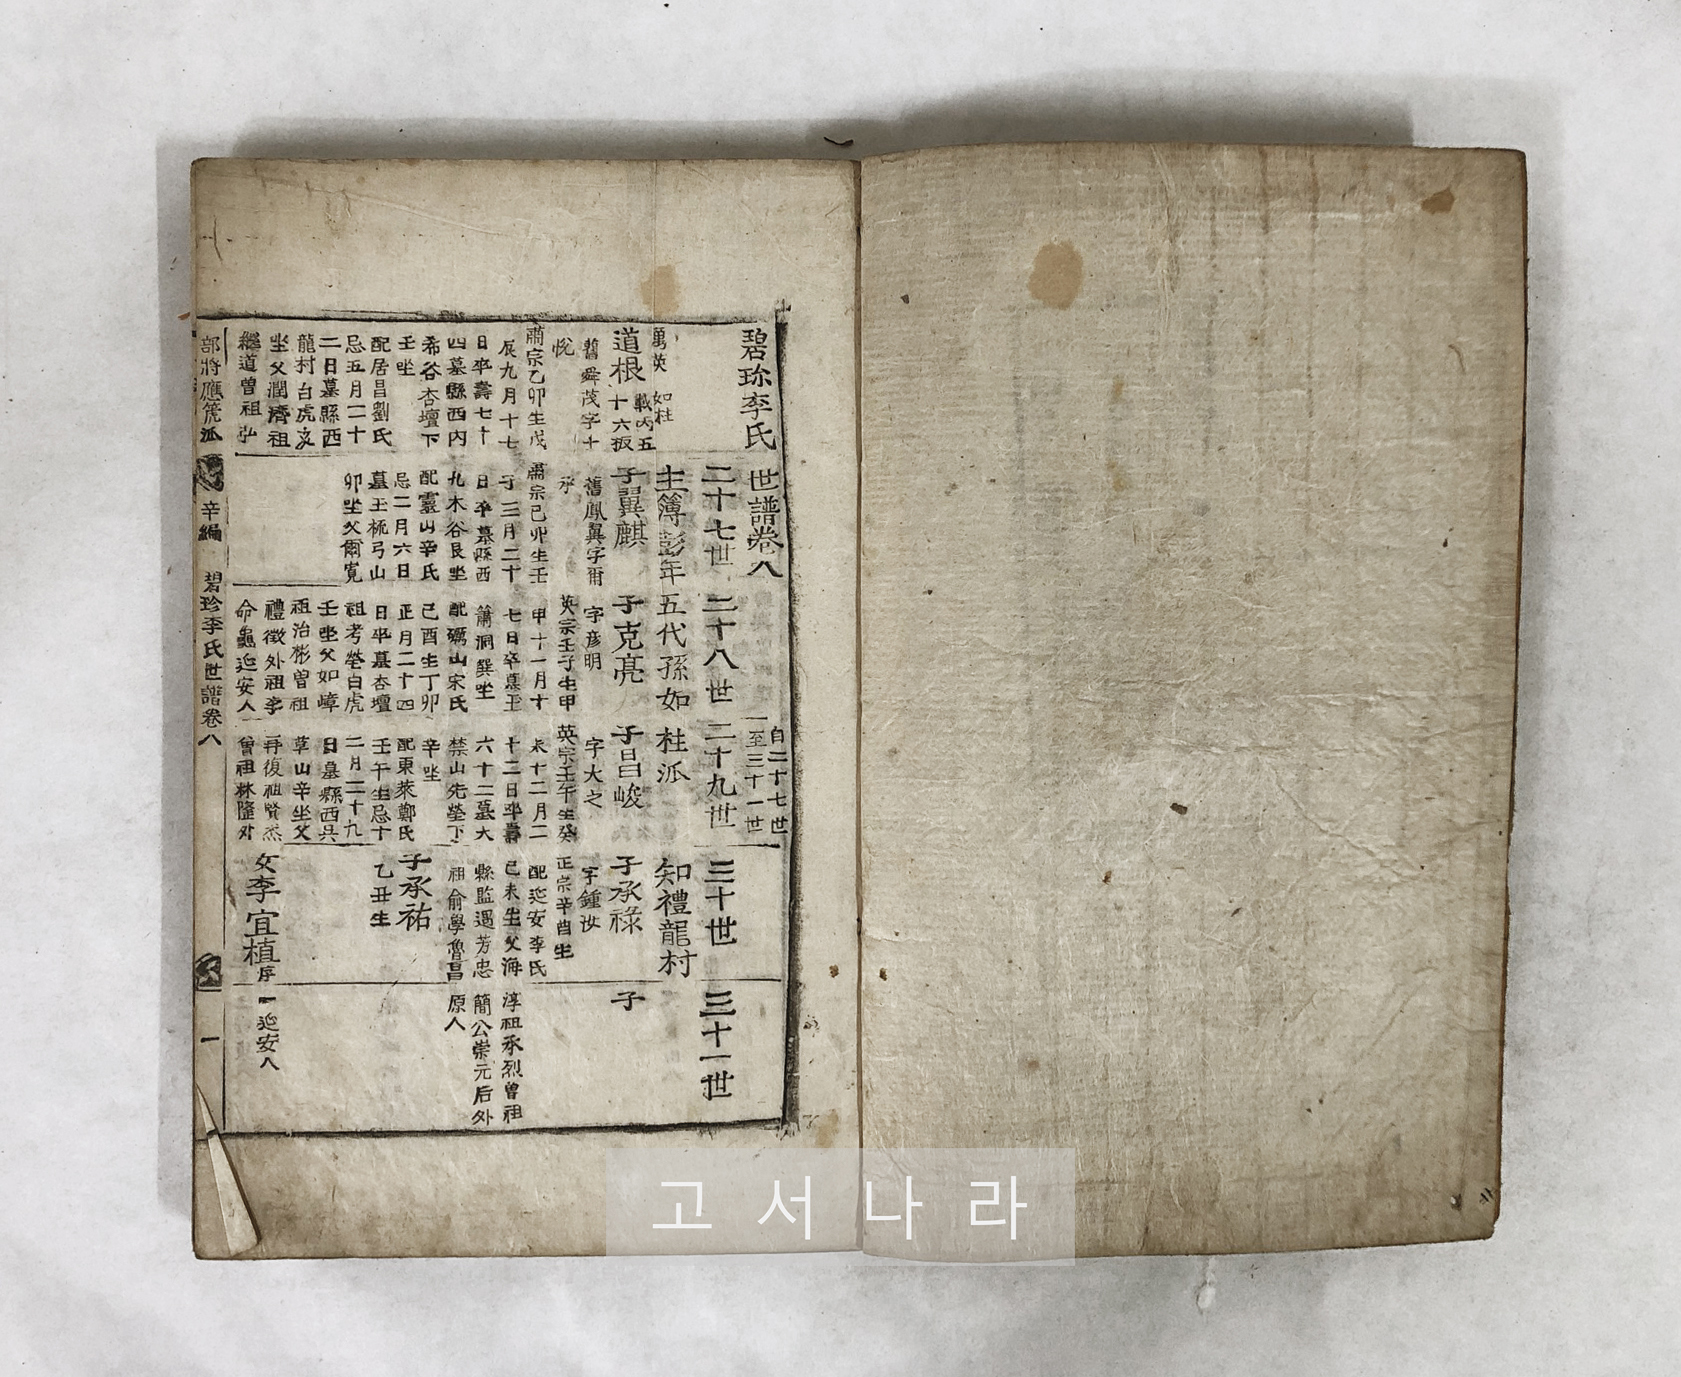 碧珎李氏世譜卷八
自二十七世
至三十一世
二十七世
二十八世
二十九世
三十世
三十一世
主簿彭年五代孫如桂派
知禮龍村
萬英
如桂
道根
十六板
子翼麒
子克亮
子昌峻
子承祿
子
舊舜茂字士
悅
肅宗乙卯生戊
辰九月十七
日卒壽七十
四墓縣西內
希谷杏壇下
壬坐
配居昌劉氏
忌五月二十
二日墓縣西
龍村白虎亥
坐父潤濟祖
繼道曾祖弘
舊鳳翼字爾
承
肅宗己卯生壬
子三月二十
日卒墓縣西
九木谷艮坐
配靈山辛氏
忌二月六日
墓玉梳弓山
卯坐父爾寬
字彦明
英宗壬子生甲
申十一月十
七日卒墓玉
簫洞巽坐
配礪山宋氏
己酉生丁卯
正月二十四
日卒墓杏壇
祖考塋白虎
壬坐父如嶂
祖治彬曾祖
禮徵外祖李
命龜延安人
字大之
英宗壬午生癸
未十二月二
十二日卒壽
六十二墓大
禁山先塋下
辛坐
配東萊鄭氏
壬午生忌十
二月二十九
日墓縣西吳
草山辛坐父
再復祖賢杰
曾祖林隆外
字鍾汝
正宗辛酉生
配延安李氏
己未生父海
縣監遇芳忠
祖俞學魯昌
淳祖承烈曾祖
簡公崇元后外
原人
子承祐
乙丑生
女李宜植
序一延安人
部將應箎派
辛編
碧珍李氏世譜卷八
一
고서나라